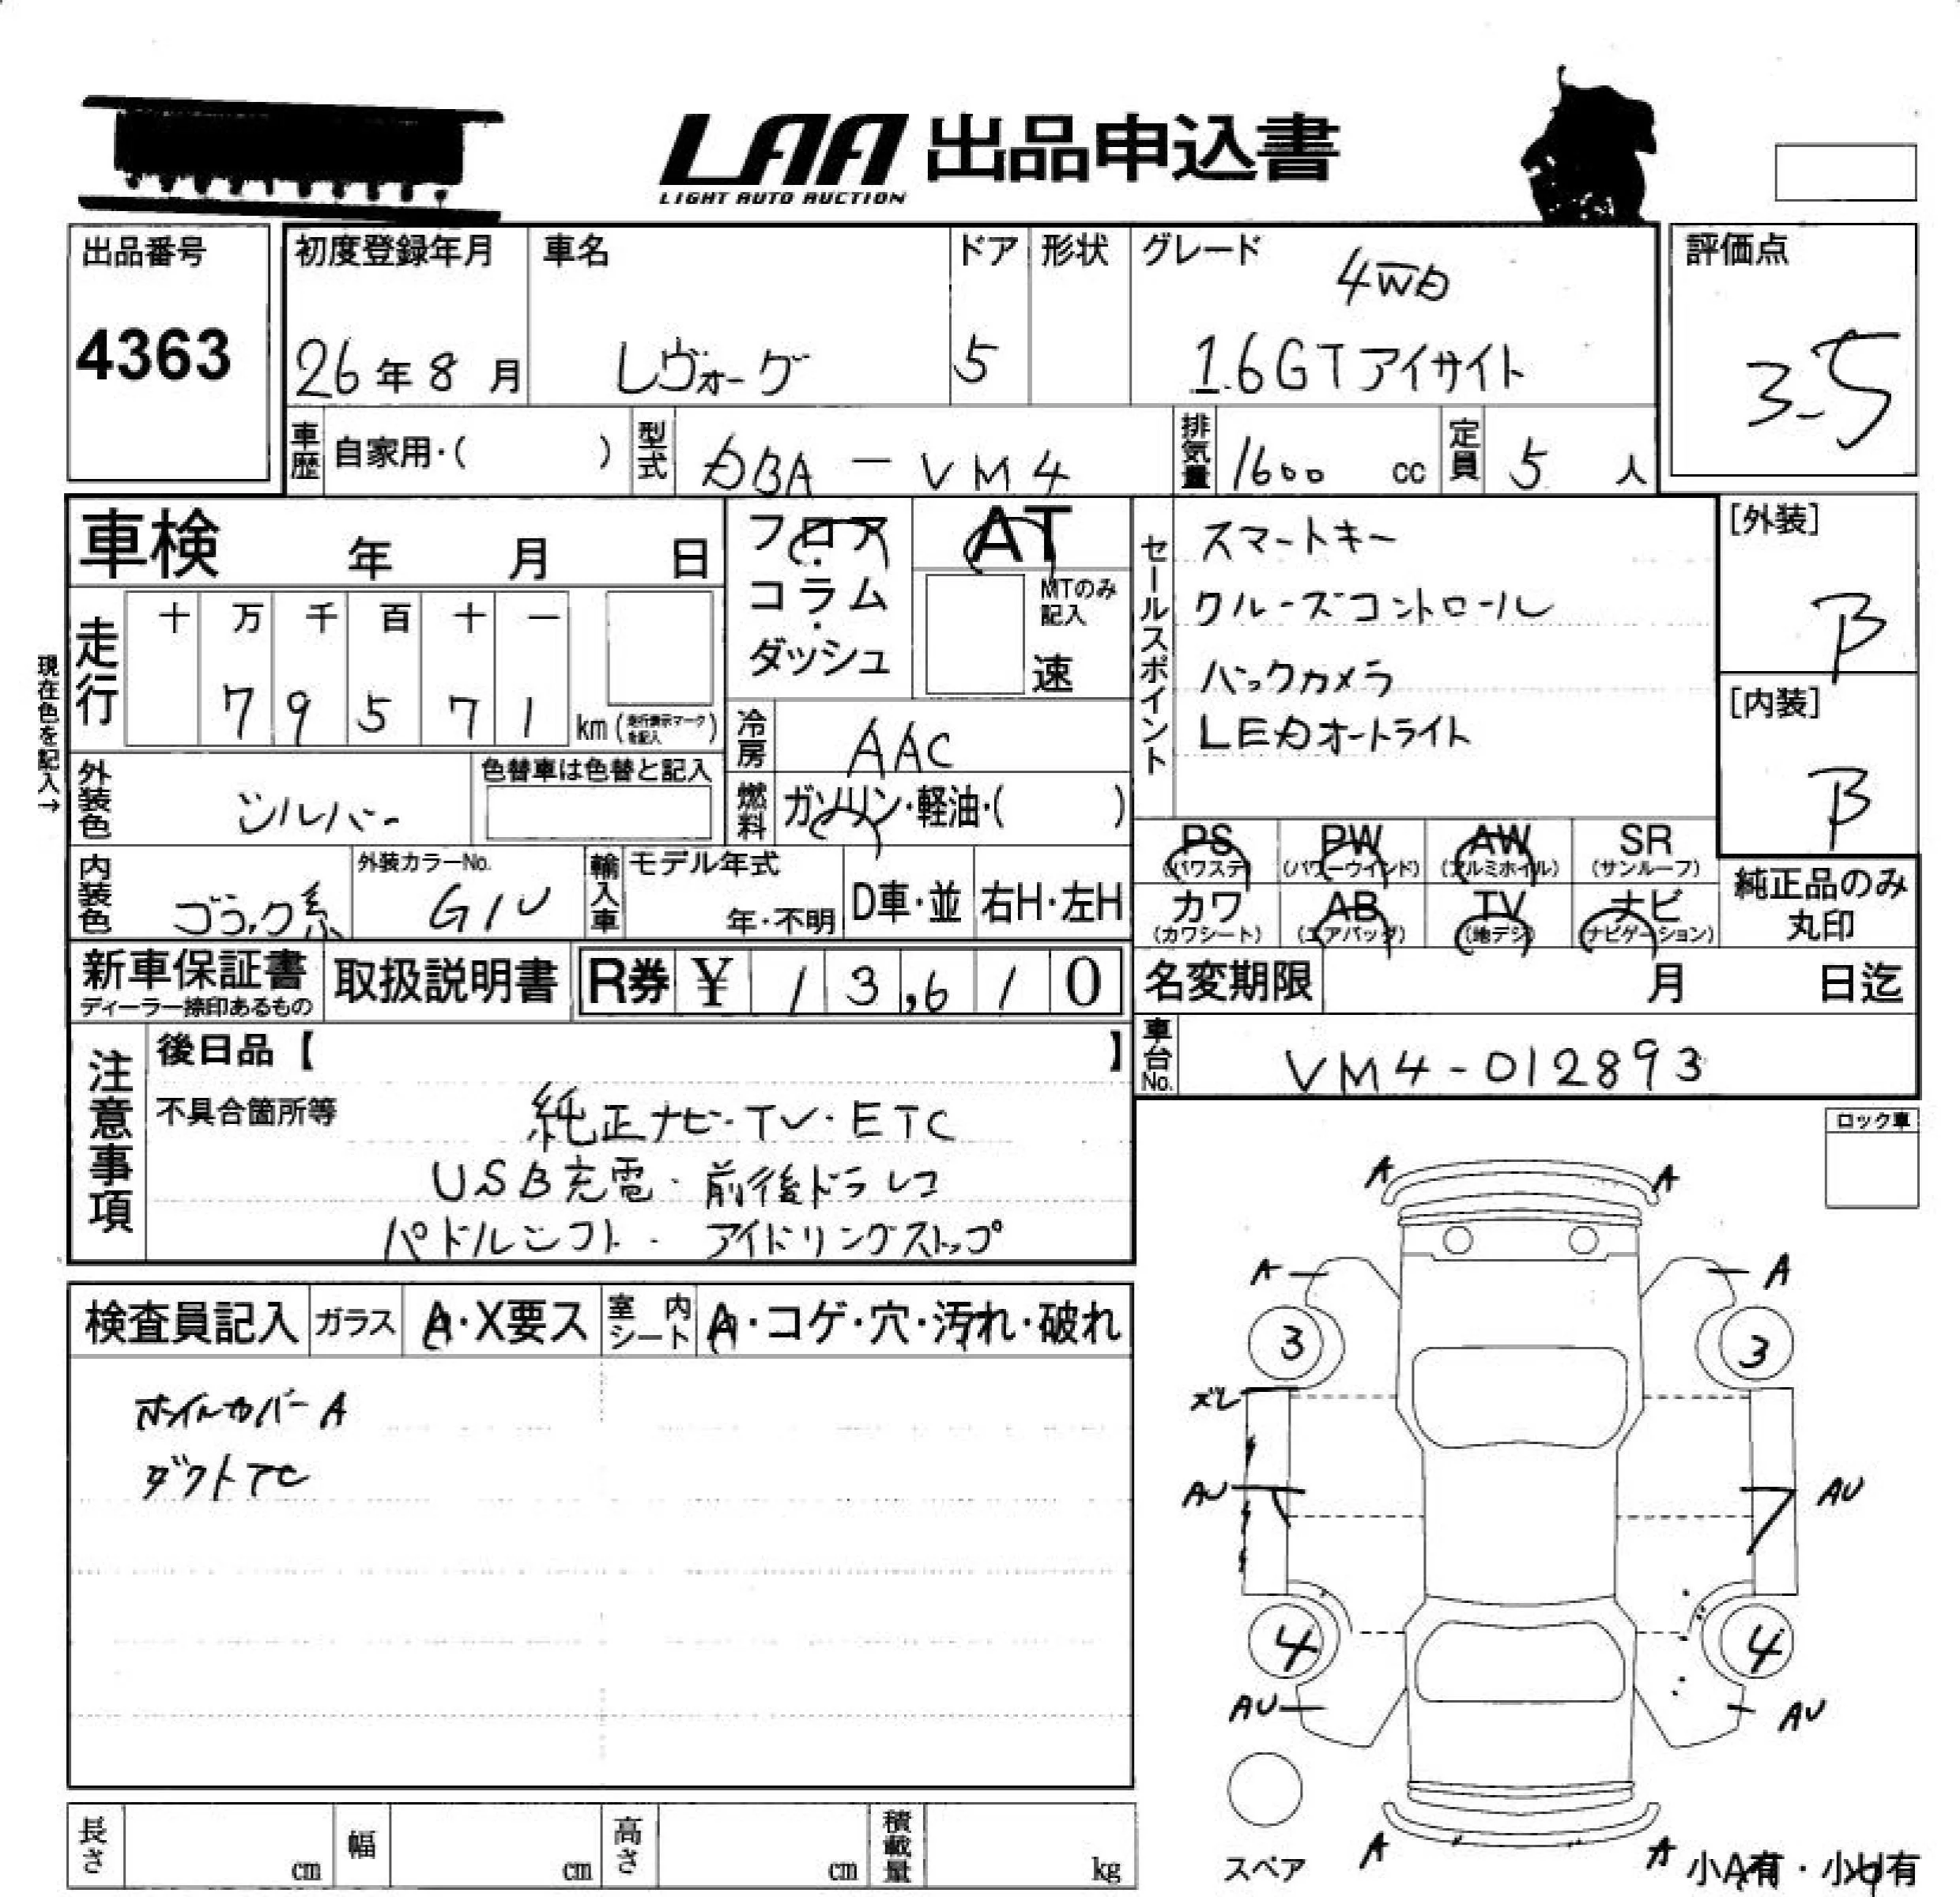 LAA 出品申込書
LIGHT AUTO AUCTION
出品番号
4363
初度登録年月
26年8月
車名
レヴォーグ
ドア
5
形状
グレード
4WD
1.6GTアイサイト
評価点
3.5
車歴 自家用・( )
型式 DBA-VM4
排気量 1600 cc
定員 5 人
車検 年 月 日
フロア・コラム・ダッシュ
AT
MTのみ記入
速
セールスポイント
スマートキー
クルーズコントロール
バックカメラ
LEDオートライト
[外装]
B
[内装]
B
現在色を記入→
走行
十 万 千 百 十 一
7 9 5 7 1 km (走行表示マークを記入)
冷房 AAC
外装色 シルバー
色替車は色替と記入
燃料 ガソリン・軽油・( )
PS (パワステ)
PW (パワーウインド)
AW (アルミホイル)
SR (サンルーフ)
カワ (カワシート)
AB (エアバッグ)
TV (地デジ)
ナビ (ナビゲーション)
純正品のみ丸印
内装色 ブラック系
外装カラーNo. G1U
輸入車 モデル年式 年・不明 D車・並 右H・左H
新車保証書
ディーラー捺印あるもの
取扱説明書
R券 ¥ 13,610
名変期限 月 日迄
車台No. VM4-012893
注意事項
後日品【 】
不具合箇所等
純正ナビ・TV・ETC
USB充電・前後ドラレコ
パドルシフト・アイドリングストップ
ロック車
検査員記入 ガラス A・X要ス 室内シート A・コゲ・穴・汚れ・破れ
ホイルカバーA
ダクトTC
A A
A A
3 3
ズレ
AU AU
4 4
AU AU
スペア
A A
小A有・小U有
長さ cm 幅 cm 高さ cm 積載量 kg